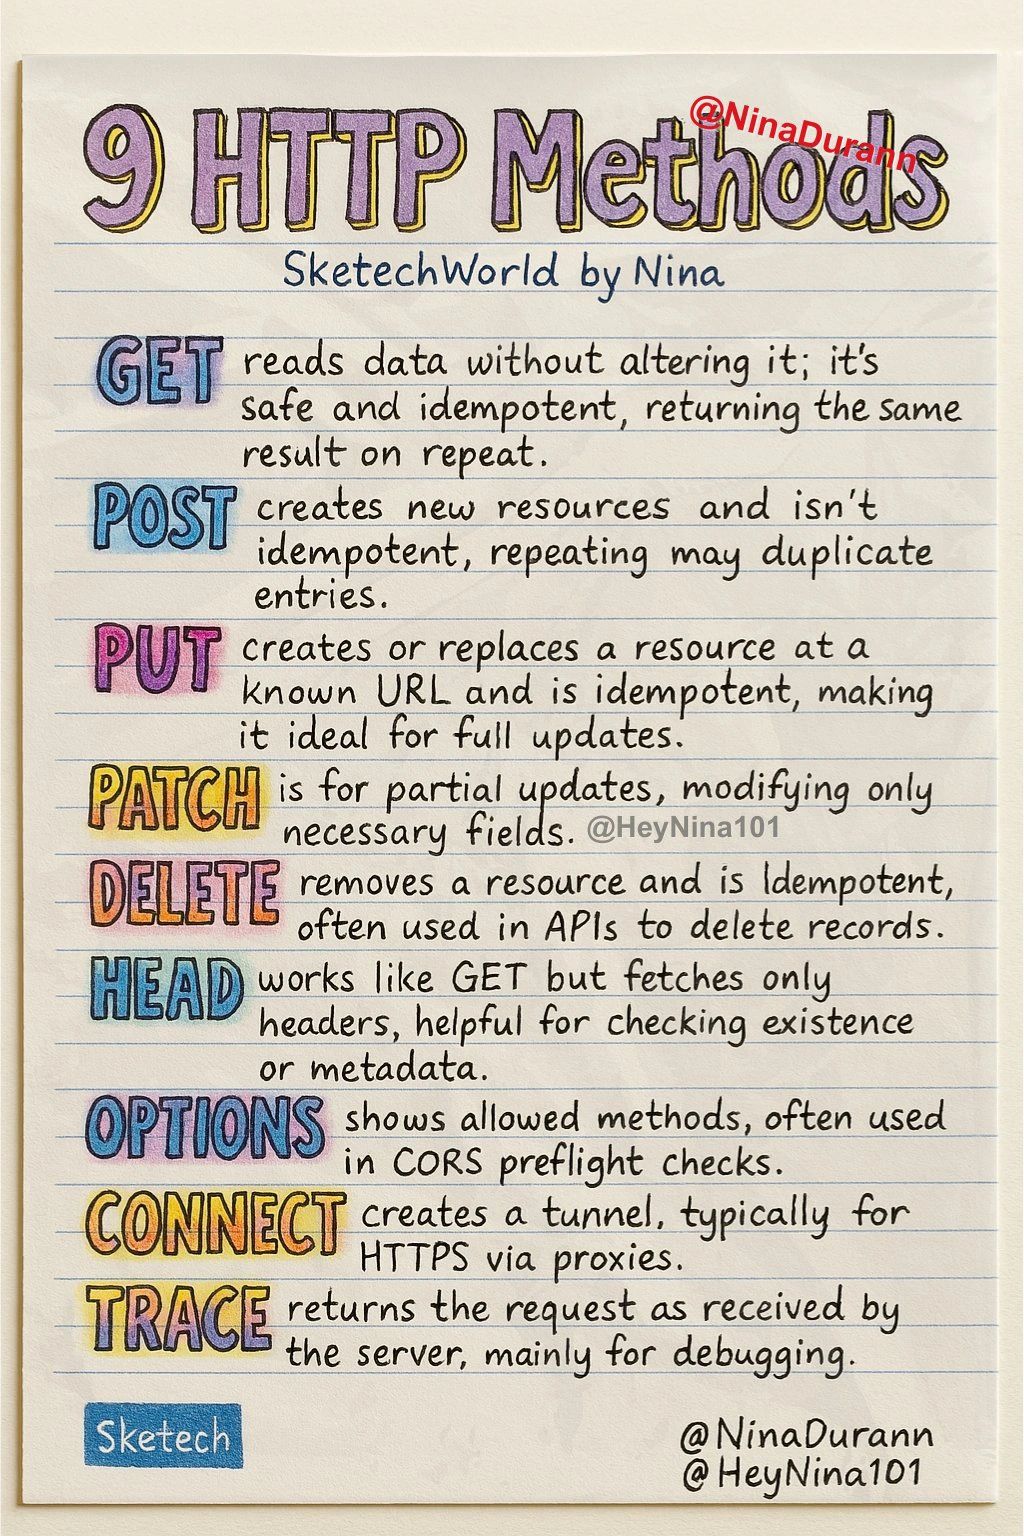 9 HTTP Methods
@NinaDurann
SketechWorld by Nina
GET reads data without altering it; it's
safe and idempotent, returning the same
result on repeat.
POST creates new resources and isn't
idempotent, repeating may duplicate
entries.
PUT creates or replaces a resource at a
known URL and is idempotent, making
it ideal for full updates.
PATCH is for partial updates, modifying only
necessary fields. @HeyNina101
DELETE removes a resource and is Idempotent,
often used in APIs to delete records.
HEAD works like GET but fetches only
headers, helpful for checking existence
or metadata.
OPTIONS shows allowed methods, often used
in CORS preflight checks.
CONNECT creates a tunnel, typically for
HTTPS via proxies.
TRACE returns the request as received by
the server, mainly for debugging.
Sketech
@NinaDurann
@HeyNina101